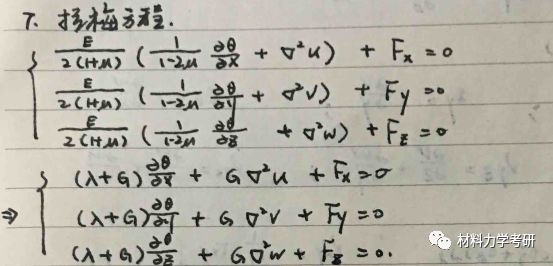 7. 拉梅方程.
E/2(1+μ) ( 1/1-2μ ∂θ/∂x + ∇²u) + Fx = 0
E/2(1+μ) ( 1/1-2μ ∂θ/∂y + ∇²v) + Fy = 0
E/2(1+μ) ( 1/1-2μ ∂θ/∂z + ∇²w) + Fz = 0
⇒ (λ+G) ∂θ/∂x + G ∇²u + Fx = 0
(λ+G) ∂θ/∂y + G ∇²v + Fy = 0
(λ+G) ∂θ/∂z + G ∇²w + Fz = 0.
材料力学考研